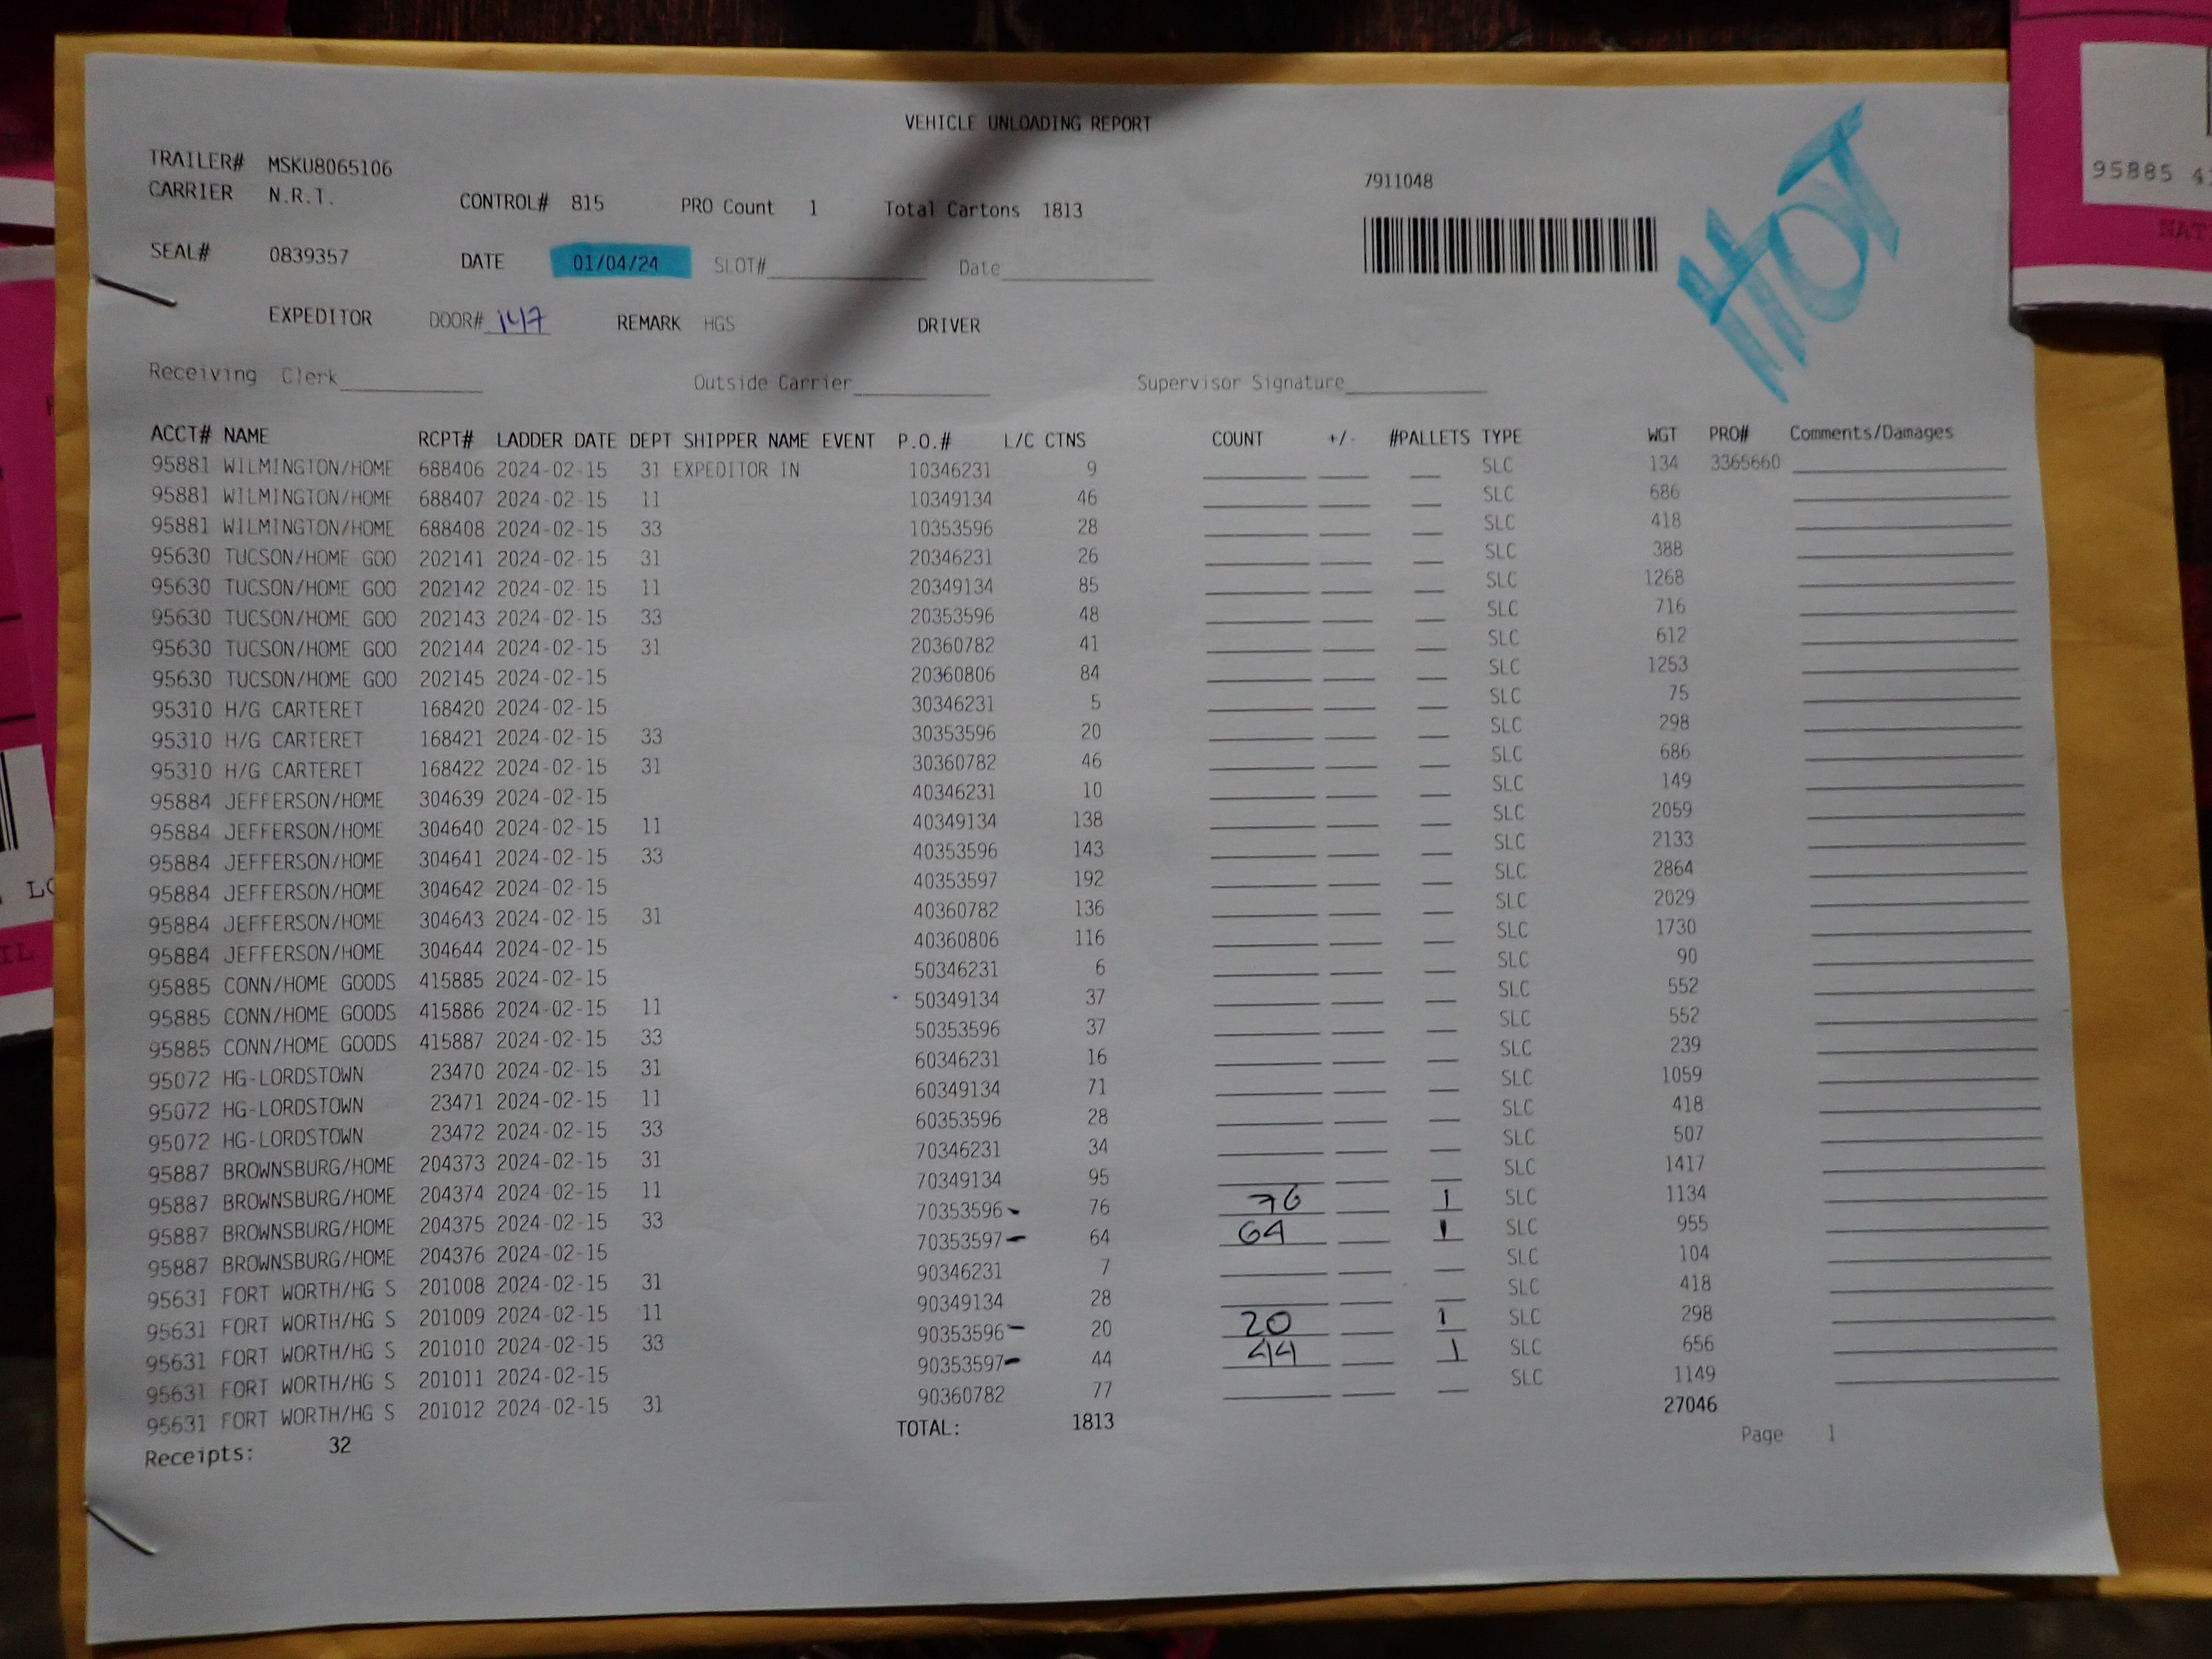 VEHICLE UNLOADING REPORT
TRAILER# MSKU8065106
CARRIER N.R.T. CONTROL# 815 PRO Count 1 Total Cartons 1813 7911048
SEAL# 0839357 DATE 01/04/24 SLOT# Date
HOT
EXPEDITOR DOOR# 147 REMARK HGS DRIVER
Receiving Clerk Outside Carrier Supervisor Signature
ACCT# NAME RCPT# LADDER DATE DEPT SHIPPER NAME EVENT P.O.# L/C CTNS COUNT +/- #PALLETS TYPE WGT PRO# Comments/Damages
95881 WILMINGTON/HOME 688406 2024-02-15 31 EXPEDITOR IN 10346231 9 SLC 134 3365660
95881 WILMINGTON/HOME 688407 2024-02-15 11 10349134 46 SLC 686
95881 WILMINGTON/HOME 688408 2024-02-15 33 10353596 28 SLC 418
95630 TUCSON/HOME GOO 202141 2024-02-15 31 20346231 26 SLC 388
95630 TUCSON/HOME GOO 202142 2024-02-15 11 20349134 85 SLC 1268
95630 TUCSON/HOME GOO 202143 2024-02-15 33 20353596 48 SLC 716
95630 TUCSON/HOME GOO 202144 2024-02-15 31 20360782 41 SLC 612
95630 TUCSON/HOME GOO 202145 2024-02-15 20360806 84 SLC 1253
95310 H/G CARTERET 168420 2024-02-15 30346231 5 SLC 75
95310 H/G CARTERET 168421 2024-02-15 33 30353596 20 SLC 298
95310 H/G CARTERET 168422 2024-02-15 31 30360782 46 SLC 686
95884 JEFFERSON/HOME 304639 2024-02-15 40346231 10 SLC 149
95884 JEFFERSON/HOME 304640 2024-02-15 11 40349134 138 SLC 2059
95884 JEFFERSON/HOME 304641 2024-02-15 33 40353596 143 SLC 2133
95884 JEFFERSON/HOME 304642 2024-02-15 40353597 192 SLC 2864
95884 JEFFERSON/HOME 304643 2024-02-15 31 40360782 136 SLC 2029
95884 JEFFERSON/HOME 304644 2024-02-15 40360806 116 SLC 1730
95885 CONN/HOME GOODS 415885 2024-02-15 50346231 6 SLC 90
95885 CONN/HOME GOODS 415886 2024-02-15 11 50349134 37 SLC 552
95885 CONN/HOME GOODS 415887 2024-02-15 33 50353596 37 SLC 552
95072 HG-LORDSTOWN 23470 2024-02-15 31 60346231 16 SLC 239
95072 HG-LORDSTOWN 23471 2024-02-15 11 60349134 71 SLC 1059
95072 HG-LORDSTOWN 23472 2024-02-15 33 60353596 28 SLC 418
95887 BROWNSBURG/HOME 204373 2024-02-15 31 70346231 34 SLC 507
95887 BROWNSBURG/HOME 204374 2024-02-15 11 70349134 95 SLC 1417
95887 BROWNSBURG/HOME 204375 2024-02-15 33 70353596 76 76 1 SLC 1134
95887 BROWNSBURG/HOME 204376 2024-02-15 70353597 64 64 1 SLC 955
95631 FORT WORTH/HG S 201008 2024-02-15 31 90346231 7 SLC 104
95631 FORT WORTH/HG S 201009 2024-02-15 11 90349134 28 SLC 418
95631 FORT WORTH/HG S 201010 2024-02-15 33 90353596 20 20 1 SLC 298
95631 FORT WORTH/HG S 201011 2024-02-15 90353597 44 44 1 SLC 656
95631 FORT WORTH/HG S 201012 2024-02-15 31 90360782 77 SLC 1149
Receipts: 32 TOTAL: 1813 27046
Page 1
95885